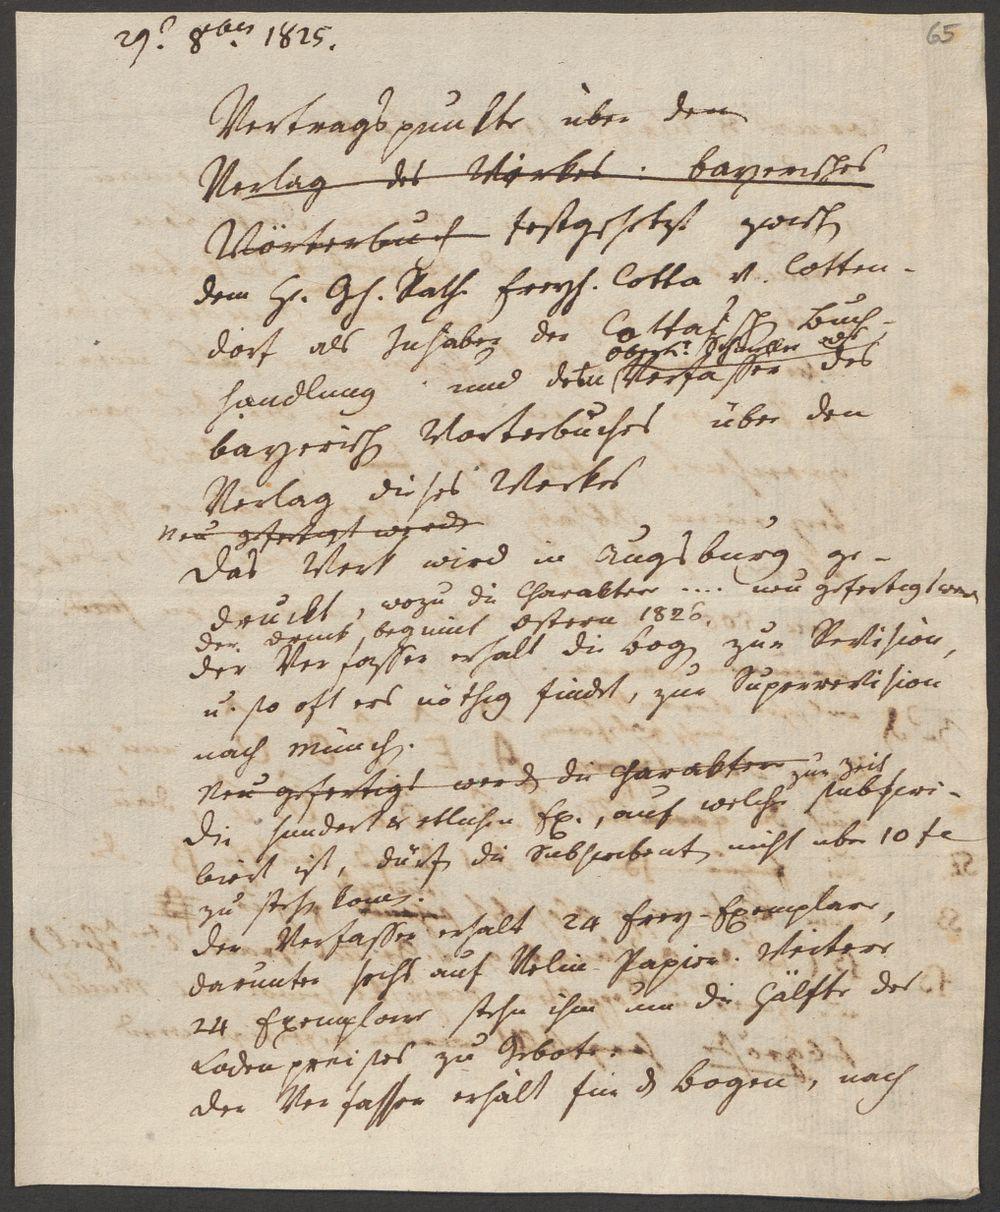 29. 8ber 1825.
65
Vertragspunkte über den
Verlag des Werkes: bayerisches
Wörterbuch festgesetzt zwisch
dem H. Gh. Rath Freyh. Cotta v. Cotten-
dorf als Inhaber der Cottaisch Buch-
Oberlt. Schmeller als
handlung und dem Verfasser des
bayerisch Wörterbuches über den
Verlag dieses Werkes
Neu gefertigt werde
Das Werk wird in Augsburg ge-
druckt, wozu die Charakter .... neu gefertigt werd
der Druck beginnt Ostern 1826.
der Verfasser erhält die Bog zur Revision,
u. so oft ers nöthig findet, zur Superrevision
nach Münch.
Neu gefertigt werd die Charaktere
zur Zeit
Die hundert u etlichen Ex., auf welche subscri-
birt ist, dürf die Subscribent nicht über 10 fl
zu steh kom.
Der Verfasser erhält 24 Frey-Exemplare,
darunter sechs auf Velin-Papier. Weitere
24 Exemplare stehn ihm um die Hälfte des
Ladenpreises zu Gebote.
Der Verfasser erhält für d Bogen, nach